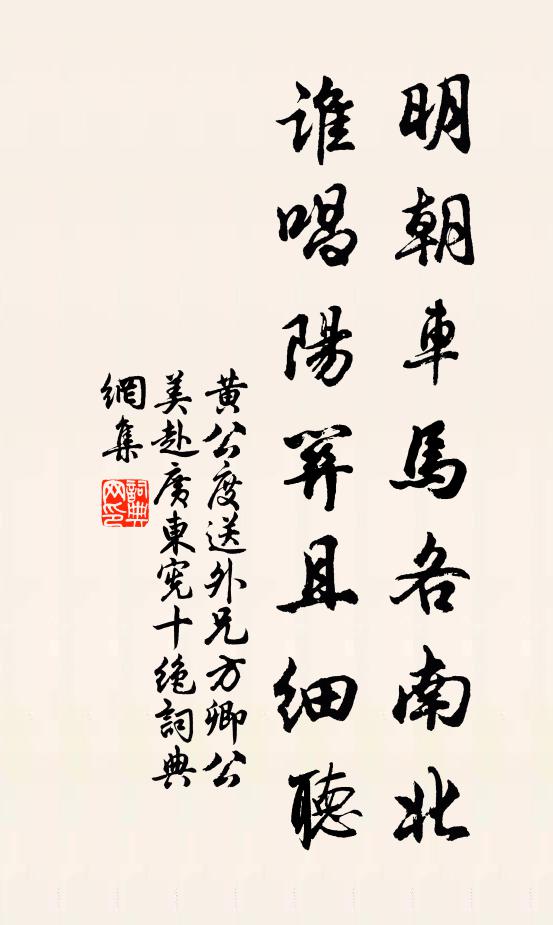 明朝車馬各南北
誰唱陽關且細聽
黃公度送外兄方卿公
美赴廣東憲十絶詞典
網集
詞典
网印